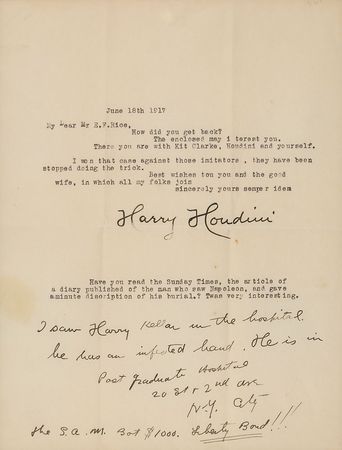 June 18th 1917
My Dear Mr E.F.Rice,
How did you get back?
The enclosed may i terest you.
There you are with Kit Clarke, Houdini and yourself.
I won that case against those imitators , they have been
stopped doing the trick.
Best wishes tou you and the good
wife, in which all my folks join
sincerely yours semper idem
Harry Houdini
Have you read the Sunday Times, the article of
a diary published of the man who saw Napoleon, and gave
aminute discription of his burial.? Twas very interesting.
I saw Harry Kellar in the hospital.
he has an infected hand. He is in
Post Graduate Hospital
20 St & 2nd ave
N.Y. City
The S.A.M. Bot $1000. Liberty Bond!!!